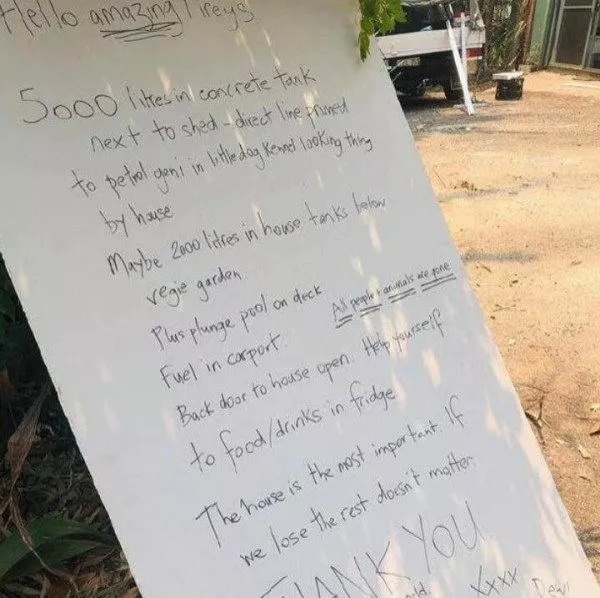 Hello amazing Fireys
5000 litres in concrete tank
next to shed - direct line primed
to petrol geni in little dog kennel looking thing
by house
Maybe 2000 litres in house tanks below
vegie garden.
Plus plunge pool on deck
All people + animals are gone
Fuel in carport.
Back door to house open. Help yourself
to food/drinks in fridge
The house is the most important. If
we lose the rest doesn't matter.
THANK YOU.
xxxx